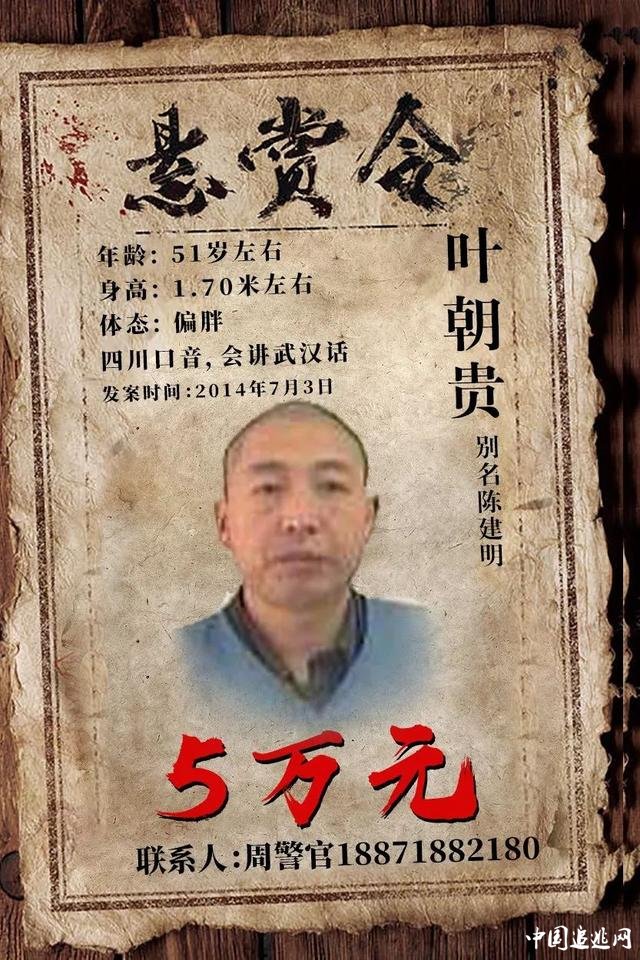 悬赏令
年龄：51岁左右
身高：1.70米左右
体态：偏胖
四川口音，会讲武汉话
发案时间：2014年7月3日
叶朝贵
别名陈建明
5万元
联系人：周警官18871882180
中国追逃网